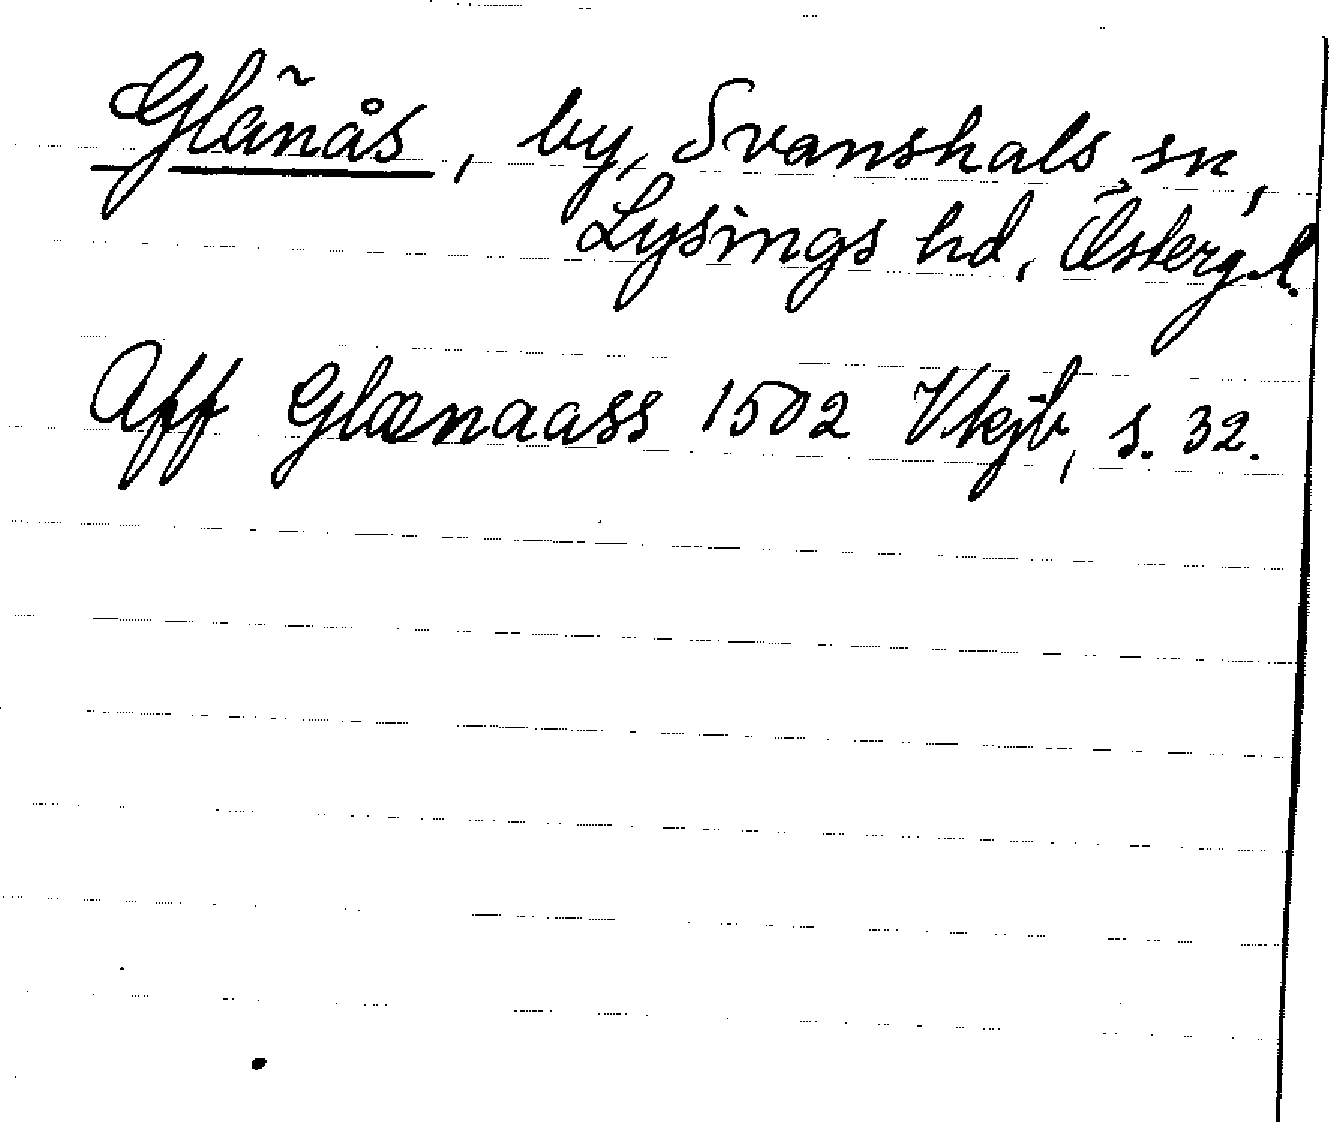 Glänås, by, Svanshals sn,
Lysings hd, Östergl.
Aff Glænaass 1502 Vkjb, s. 32.